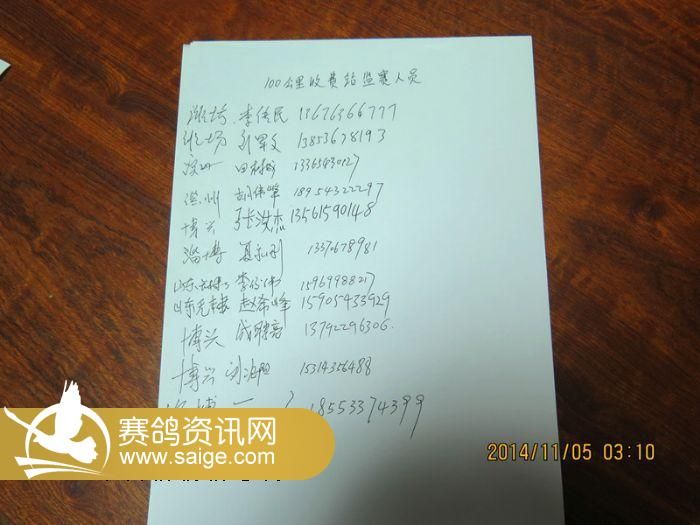 100公里收费站监赛人员
潍坊 李传民 13676366777
潍坊 刘军文 13853678193
滨州 田 13365430127
滨州 胡伟峰 18954322297
博兴 张洪杰 13561590148
淄博 夏永刚 13370678981
山东 李 15969998217
山东无棣 赵希峰 15905433929
博兴 成聘亮 13792296306.
博兴 15314356488
博 18553374399
赛鸽资讯网
www.saige.com
2014/11/05 03:10